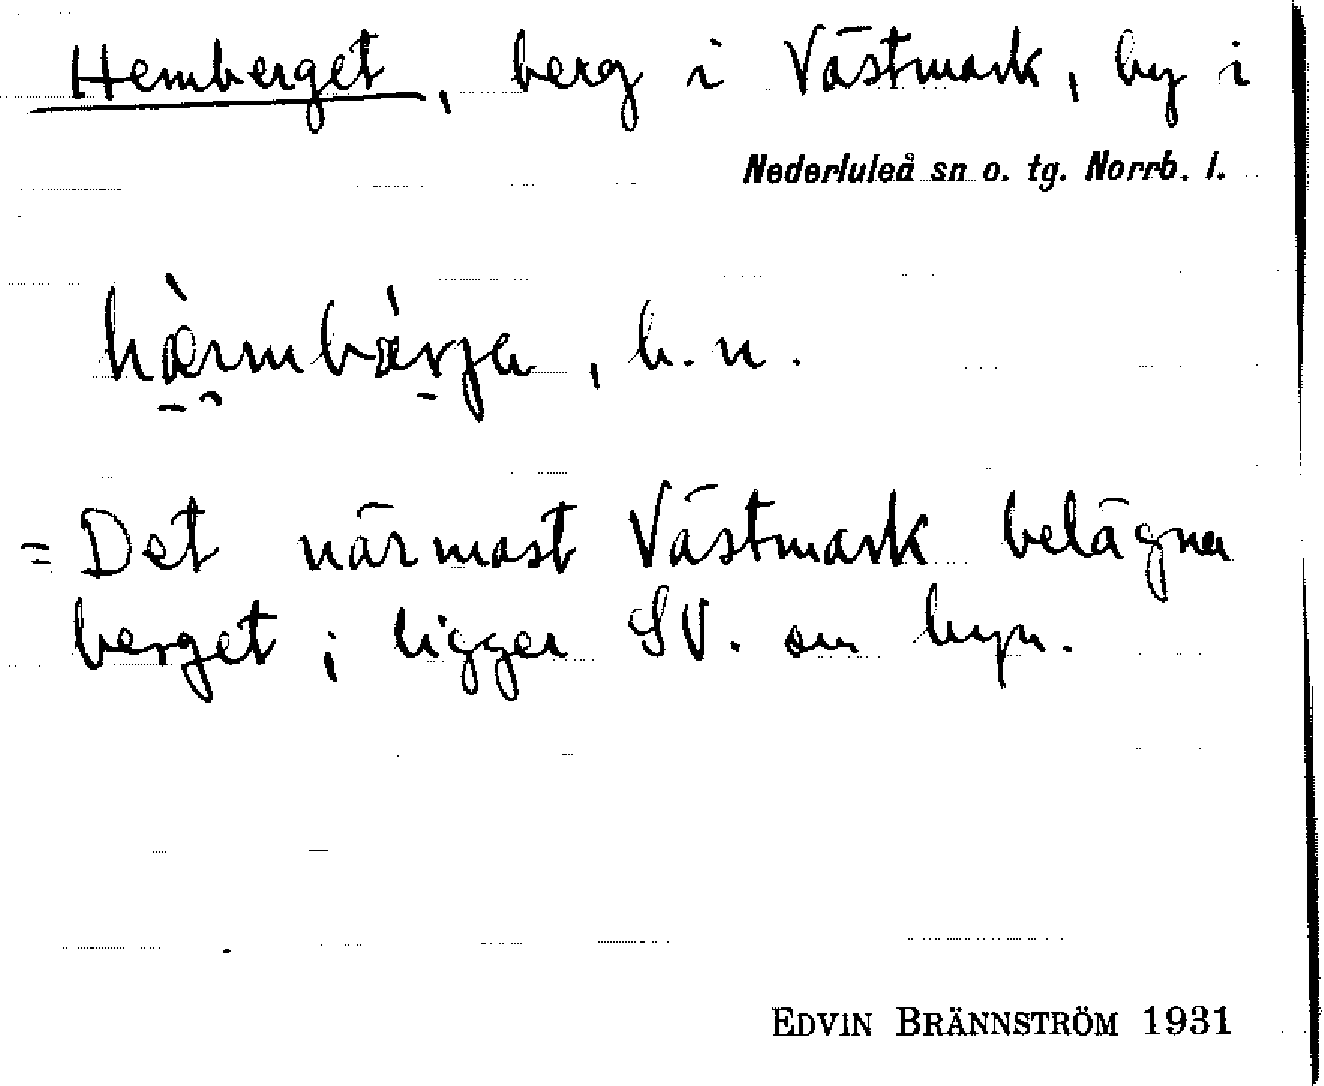 Hemberget, berg i Västmark, by i
Nederluleå sn o. tg. Norrb. l.
b. n.
= Det närmast Västmark belägna
berget; ligger SV. om byn.
EDVIN BRÄNNSTRÖM 1931